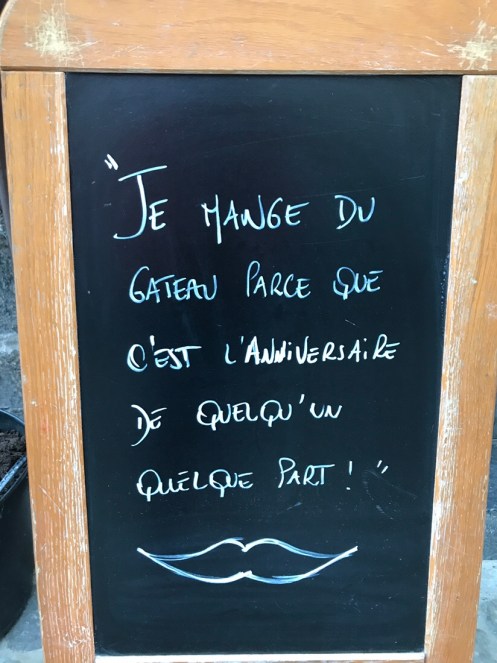 "JE MANGE DU
GATEAU PARCE QUE
C'EST L'ANNIVERSAIRE
DE QUELQU'UN
QUELQUE PART ! "